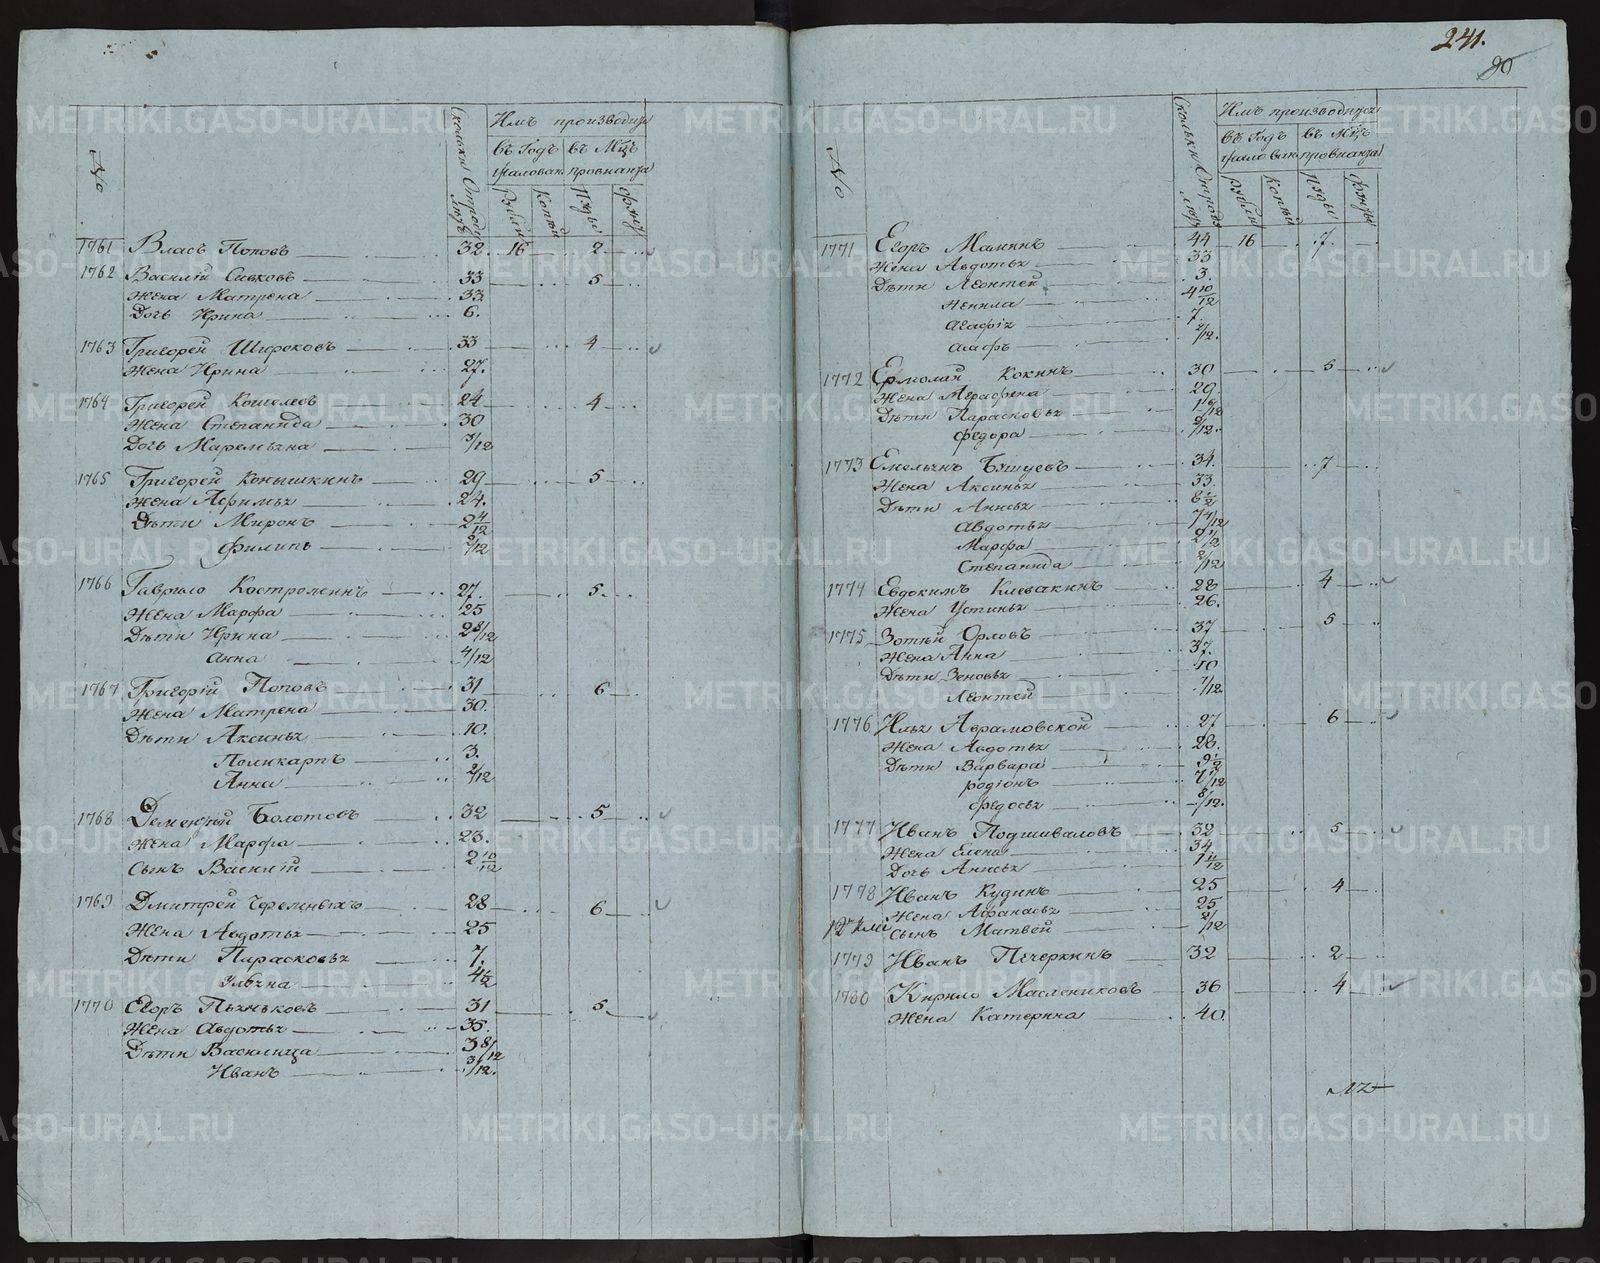 241.
90
№
Сколько Отроду летъ
Имъ производитца
въ Годъ въ Мцъ
жалован провианта
Рубли Копѣй Пуды Фунты
1761 Власъ Поповъ 32. 16 2
1762 Василей Сивковъ 33 5
Жена Матрена 33
Дочь Ирина 6.
1763 Григорей Широковъ 33 4
Жена Ирина 27.
1764 Григорей Кошелевъ 24 4
Жена Степанида 30
Дочь Маремьяна 3/12
1765 Григорей Конышкинъ 29 5
Жена Афимья 24.
Дѣти Миронъ 2 4/12
Филипъ 2/12
1766 Гаврило Костроминъ 27. 5.
Жена Марфа 25
Дѣти Ирина 2 8/12
Анна 4/12
1767 Григорій Поповъ 31 6
Жена Матрена 30.
Дѣти Аксинья 10.
Поликарпъ 3.
Анна 2/12
1768 Дементей Болотовъ 32 5
Жена Марфа 23.
Сынъ Василий 2 10/12
1769 Дмитрей Черемныхъ 28 6
Жена Авдотья 25
Дѣти Парасковья 7.
Ульяна 4 1/2
1770 Егоръ Пьяньковъ 31 5
Жена Авдотья 35.
Дѣти Василиса 3 8/12
Иванъ 3/12.
№
Сколько Отроду летъ
Имъ производитца
въ Годъ въ Мцъ
жалован провианта
Рубли Копѣй Пуды Фунты
1771 Егоръ Маминъ 44 16 7
Жена Авдотья 33
Дѣти Леонтей 3.
Ненила 4 10/12
Агафія 7.
Агафъ 2/12.
1772 Ермолай Кокинъ 30 5
Жена Аграфена 29
Дѣти Парасковья 1 9/12
Федора 2/12.
1773 Емельянъ Бяшуевъ 34. 7
Жена Аксинья 33.
Дѣти Анисья 8 1/2
Авдотья 7 4/12
Марфа 2 1/2
Степанида 2/12
1774 Евдокимъ Клевакинъ 28 4
Жена Устинья 26.
1775 Зотей Орловъ 37 5
Жена Анна 37.
Дѣти Зеновья 10
Леонтей 7/12
1776 Илья Аврамовской 27 6
Жена Авдотья 28.
Дѣти Варвара 9 1/2
Родіонъ 7 1/12
Федосья 8/12.
1777 Иванъ Подшиваловъ 32 5
Жена Елена 34.
Дочь Анисья 1 11/12
1778 Иванъ Кудинъ 25 4
Жена Афанасья 25
Сынъ Матвей 2/12
1779 Иванъ Печеркинъ 32 2
1780 Кирило Маслениковъ 36 4
Жена Катерина 40.